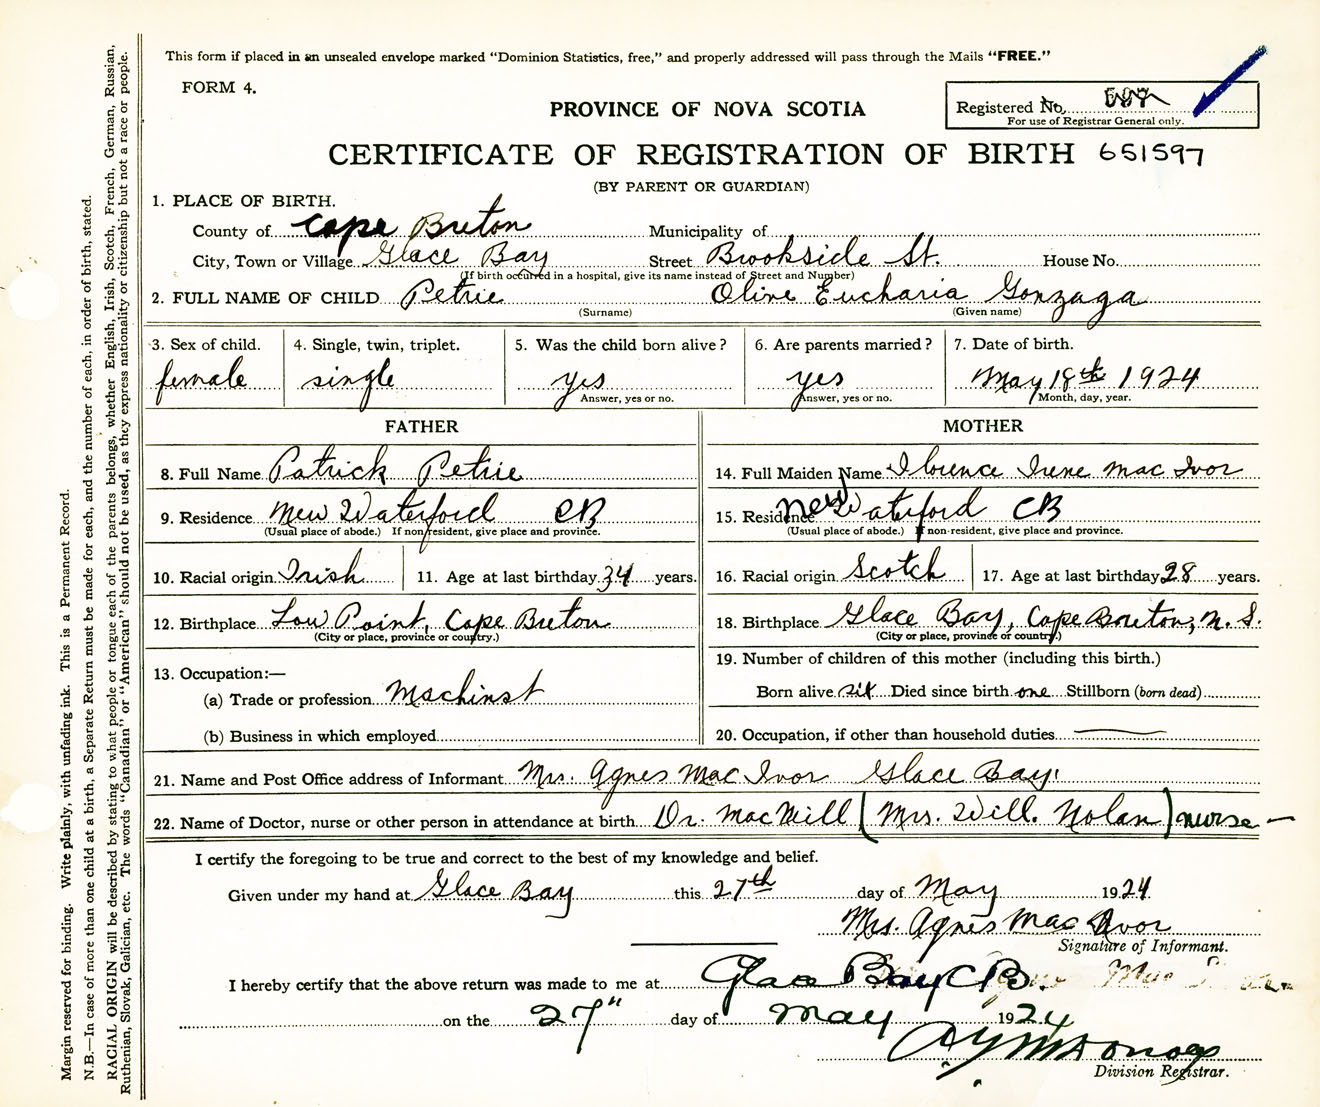 This form if placed in an unsealed envelope marked "Dominion Statistics, free," and properly addressed will pass through the Mails "FREE."
FORM 4.
Registered No.
For use of Registrar General only.
PROVINCE OF NOVA SCOTIA
CERTIFICATE OF REGISTRATION OF BIRTH 651597
(BY PARENT OR GUARDIAN)
1. PLACE OF BIRTH.
County of Cape Breton Municipality of
City, Town or Village Glace Bay Street Brookside St. House No.
(If birth occurred in a hospital, give its name instead of Street and Number)
2. FULL NAME OF CHILD Petrie Olive Eucharia Gonzaga
(Surname) (Given name)
3. Sex of child. 4. Single, twin, triplet. 5. Was the child born alive? 6. Are parents married? 7. Date of birth.
female single yes yes May 18th 1924
Answer, yes or no. Answer, yes or no. Month, day, year.
FATHER
8. Full Name Patrick Petrie
9. Residence New Waterford CB
(Usual place of abode.) If non-resident, give place and province.
10. Racial origin Irish 11. Age at last birthday 34 years.
12. Birthplace Low Point, Cape Breton
(City or place, province or country.)
13. Occupation:—
(a) Trade or profession Machinst
(b) Business in which employed
MOTHER
14. Full Maiden Name Florence Irene Mac Ivor
15. Residence New Waterford CB
(Usual place of abode.) If non-resident, give place and province.
16. Racial origin Scotch 17. Age at last birthday 28 years.
18. Birthplace Glace Bay, Cape Breton, N. S.
(City or place, province or country.)
19. Number of children of this mother (including this birth.)
Born alive six Died since birth one Stillborn (born dead)
20. Occupation, if other than household duties
21. Name and Post Office address of Informant Mrs. Agnes Mac Ivor Glace Bay
22. Name of Doctor, nurse or other person in attendance at birth Dr. MacNeill (Mrs. Will. Nolan) nurse —
I certify the foregoing to be true and correct to the best of my knowledge and belief.
Given under my hand at Glace Bay this 27th day of May 1924
Mrs. Agnes Mac Ivor
Signature of Informant.
I hereby certify that the above return was made to me at Glace Bay CB.
on the 27" day of May 1924
Division Registrar.
Margin reserved for binding. Write plainly, with unfading ink. This is a Permanent Record.
N.B.—In case of more than one child at a birth, a Separate Return must be made for each, and the number of each, in order of birth, stated.
RACIAL ORIGIN will be described by stating to what people or tongue each of the parents belongs, whether English, Irish, Scotch, French, German, Russian,
Ruthenian, Slovak, Galician, etc. The words "Canadian" or "American" should not be used, as they express nationality or citizenship but not a race or people.